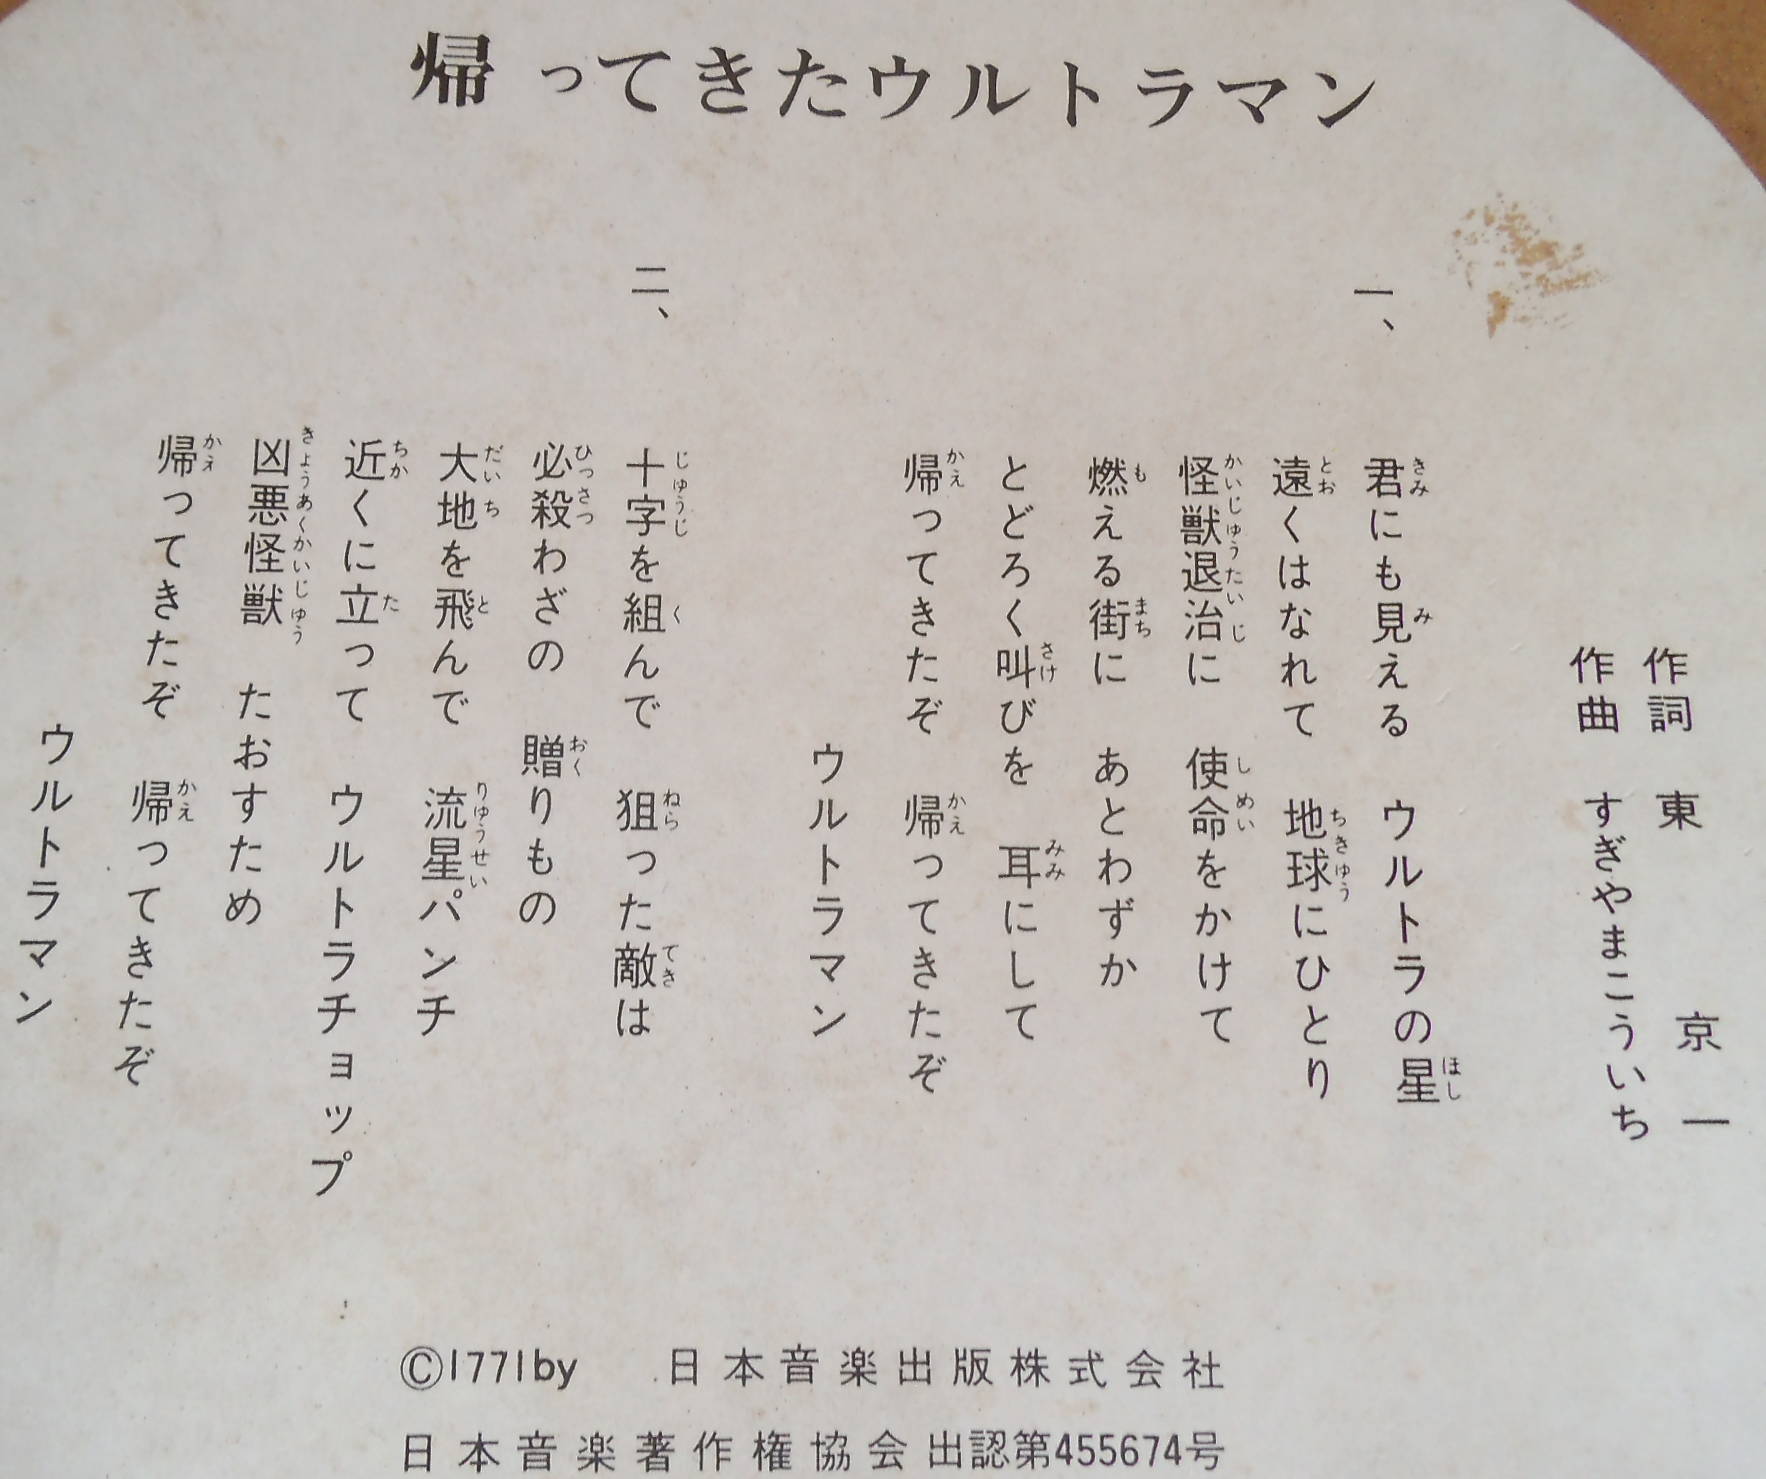 帰ってきたウルトラマン
作詞 東 京一
作曲 すぎやまこういち
一、
君にも見える ウルトラの星
遠くはなれて 地球にひとり
怪獣退治に 使命をかけて
燃える街に あとわずか
とどろく叫びを 耳にして
帰ってきたぞ 帰ってきたぞ
ウルトラマン
二、
十字を組んで 狙った敵は
必殺わざの 贈りもの
大地を飛んで 流星パンチ
近くに立って ウルトラチョップ
凶悪怪獣 たおすため
帰ってきたぞ 帰ってきたぞ
ウルトラマン
©1771by 日本音楽出版株式会社
日本音楽著作権協会出認第455674号